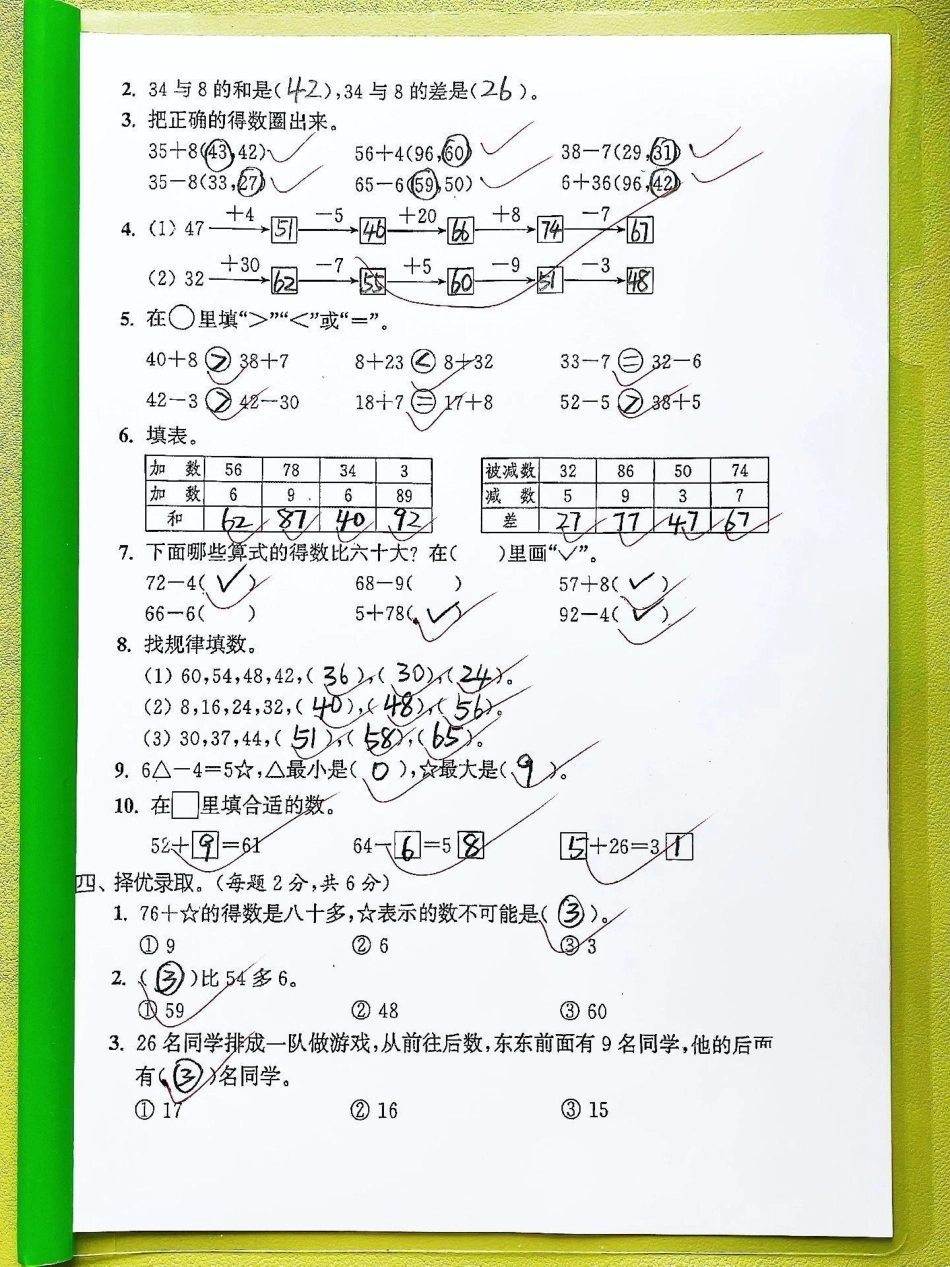 2. 34与8的和是(42),34与8的差是(26)。
3. 把正确的得数圈出来。
35+8(43,42) 56+4(96,60) 38-7(29,31)
35-8(33,27) 65-6(59,50) 6+36(96,42)
+4 -5 +20 +8 -7
4. (1) 47 51 46 66 74 67
+30 -7 +5 -9 -3
(2) 32 62 55 60 51 48
5. 在○里填“>”“<”或“=”。
40+8 > 38+7 8+23 < 8+32 33-7 = 32-6
42-3 > 42-30 18+7 = 17+8 52-5 > 38+5
6. 填表。
加 数 56 78 34 3 被减数 32 86 50 74
加 数 6 9 6 89 减 数 5 9 3 7
和 62 87 40 92 差 27 77 47 67
7. 下面哪些算式的得数比六十大? 在( )里画“✓”。
72-4(✓) 68-9( ) 57+8(✓)
66-6( ) 5+78(✓) 92-4(✓)
8. 找规律填数。
(1) 60,54,48,42,(36),(30),(24)。
(2) 8,16,24,32,(40),(48),(56)。
(3) 30,37,44,(51),(58),(65)。
9. 6△-4=5☆,△最小是(0),☆最大是(9)。
10. 在□里填合适的数。
52+9=61 64-6=58 5+26=31
四、择优录取。(每题2分,共6分)
1. 76+☆的得数是八十多,☆表示的数不可能是(③)。
① 9 ② 6 ③ 3
2. (③)比54多6。
① 59 ② 48 ③ 60
3. 26名同学排成一队做游戏,从前往后数,东东前面有9名同学,他的后面
有(③)名同学。
① 17 ② 16 ③ 15